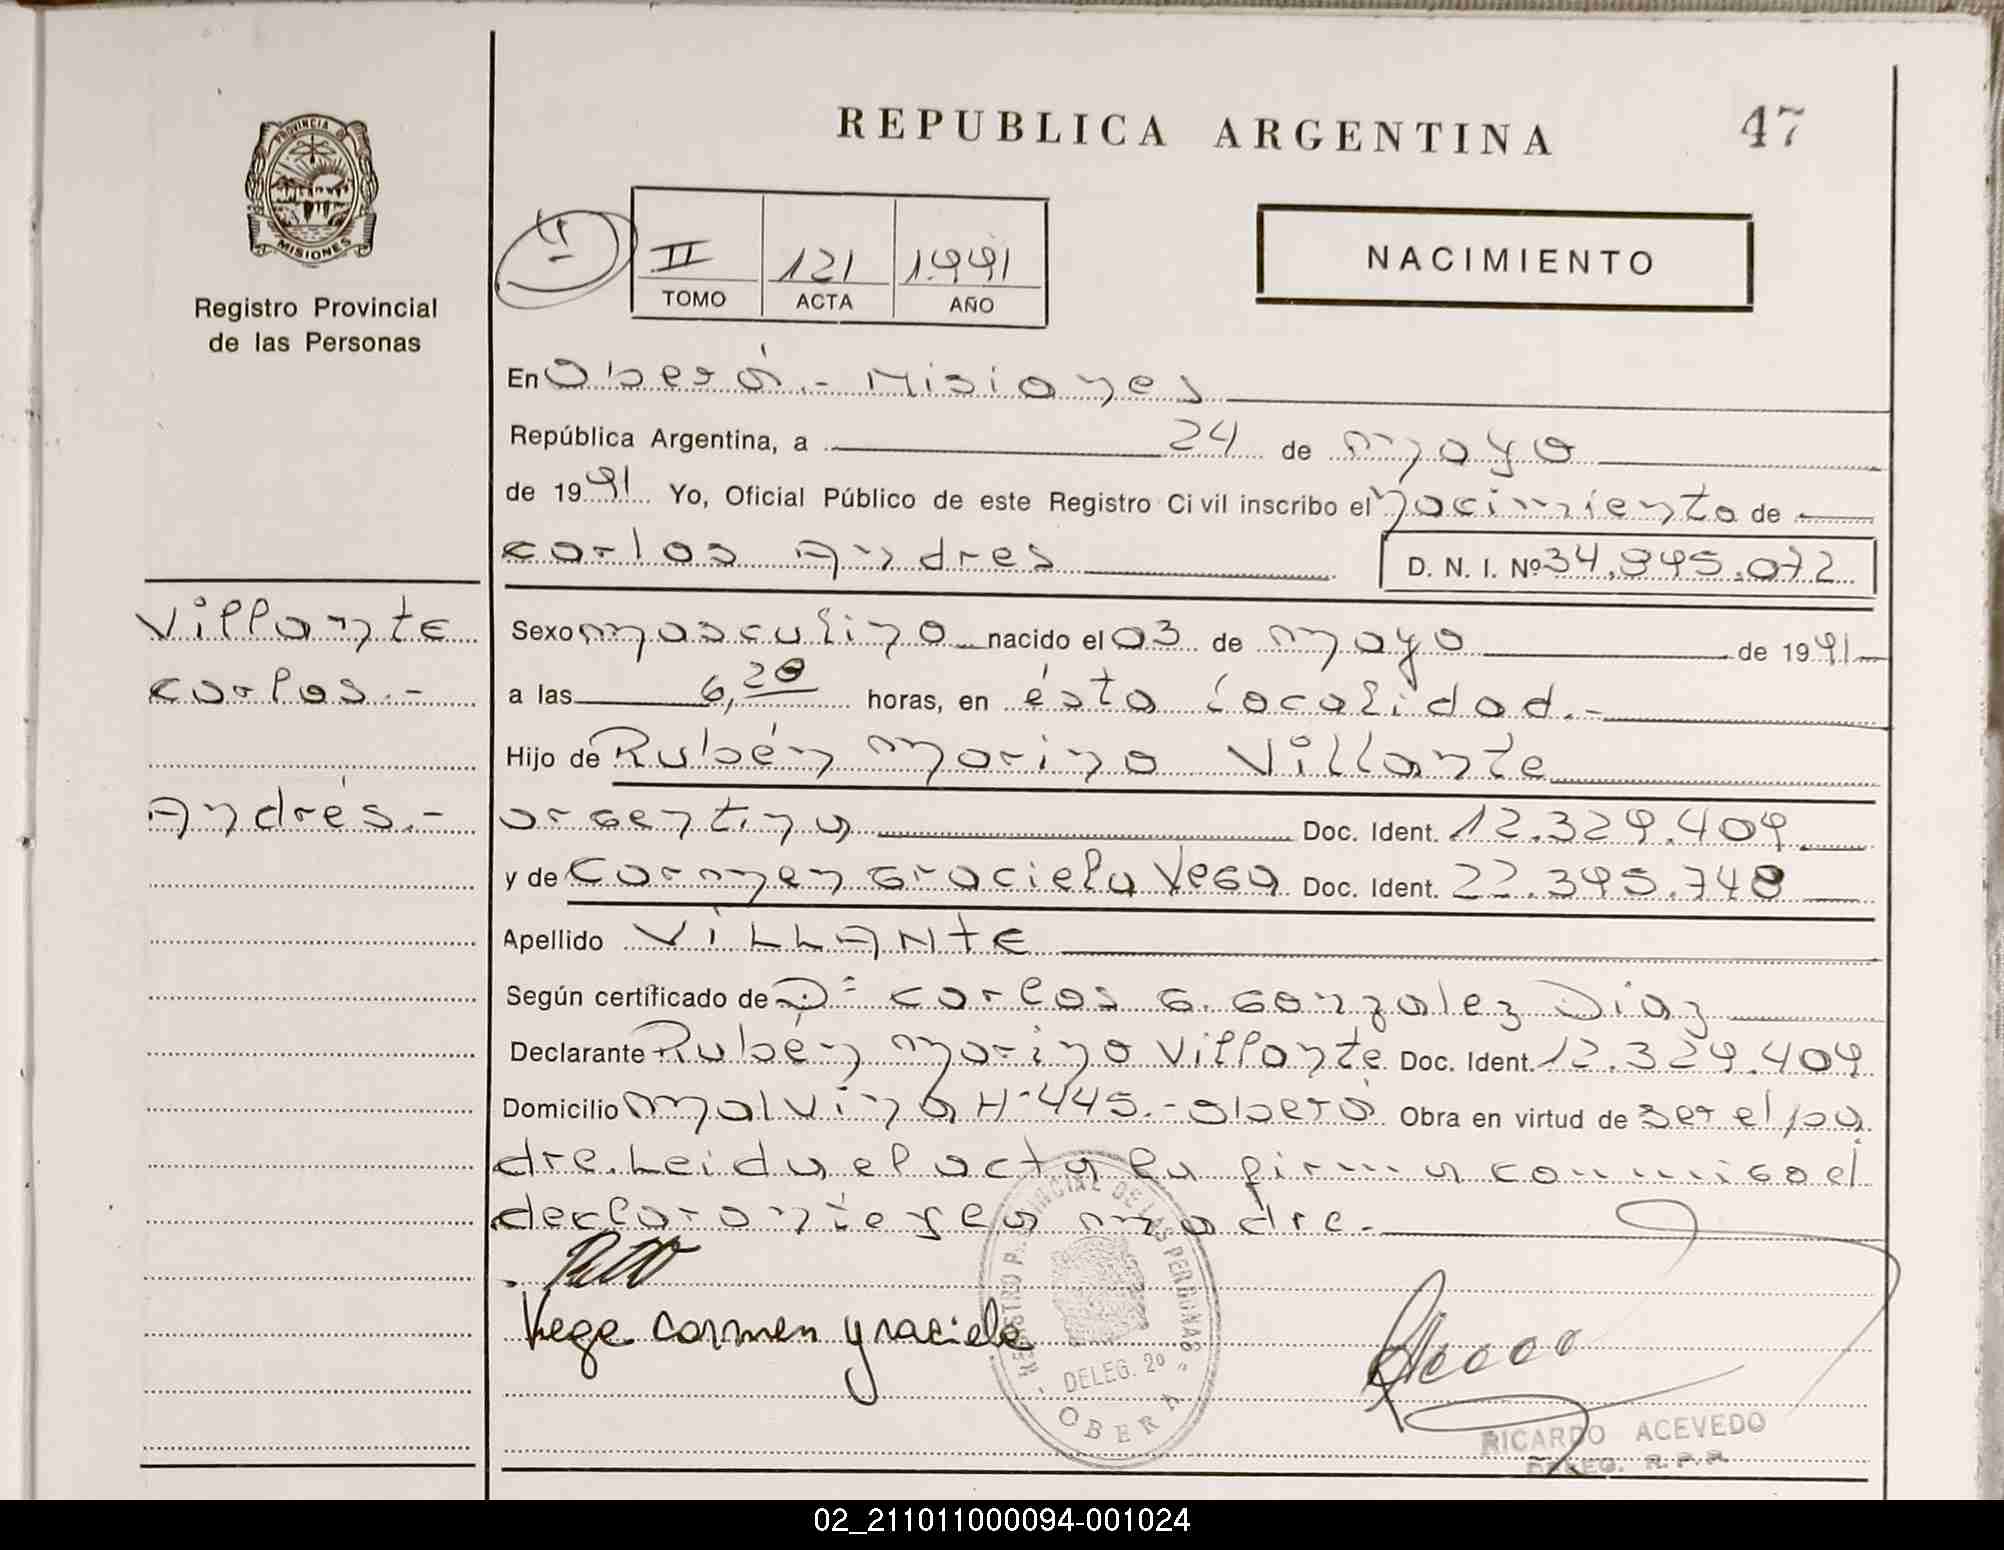 47
REPUBLICA ARGENTINA
PROVINCIA DE
MISIONES
Registro Provincial
de las Personas
II 121 1991
TOMO ACTA AÑO
NACIMIENTO
En Oberá.- Misiones
República Argentina, a 24 de mayo
de 1991 Yo, Oficial Público de este Registro Civil inscribo el nacimiento de
Carlos Andres D. N. I. Nº 34.995.072
Villante
Carlos.-
Andrés.-
Sexo masculino nacido el 03 de mayo de 1991
a las 6,20 horas, en ésta localidad.-
Hijo de Rubén Marino Villante
argentina Doc. Ident. 12.329.409
y de Carmen Graciela Vega Doc. Ident. 22.395.748
Apellido VILLANTE
Según certificado de D= Carlos G. Gonzalez Diaz
Declarante Rubén Marino Villante Doc. Ident. 12.329.409
Domicilio Malvina Hº 445.- Oberá Obra en virtud de ser el pa
dre. Leida el acta la firma conmigo el
declarante y la madre.-
Vega Carmen graciela
REGISTRO PROVINCIAL DE LAS PERSONAS
DELEG. 2º
OBERA
RICARDO ACEVEDO
DELEG. R.P.P.
02_211011000094-001024